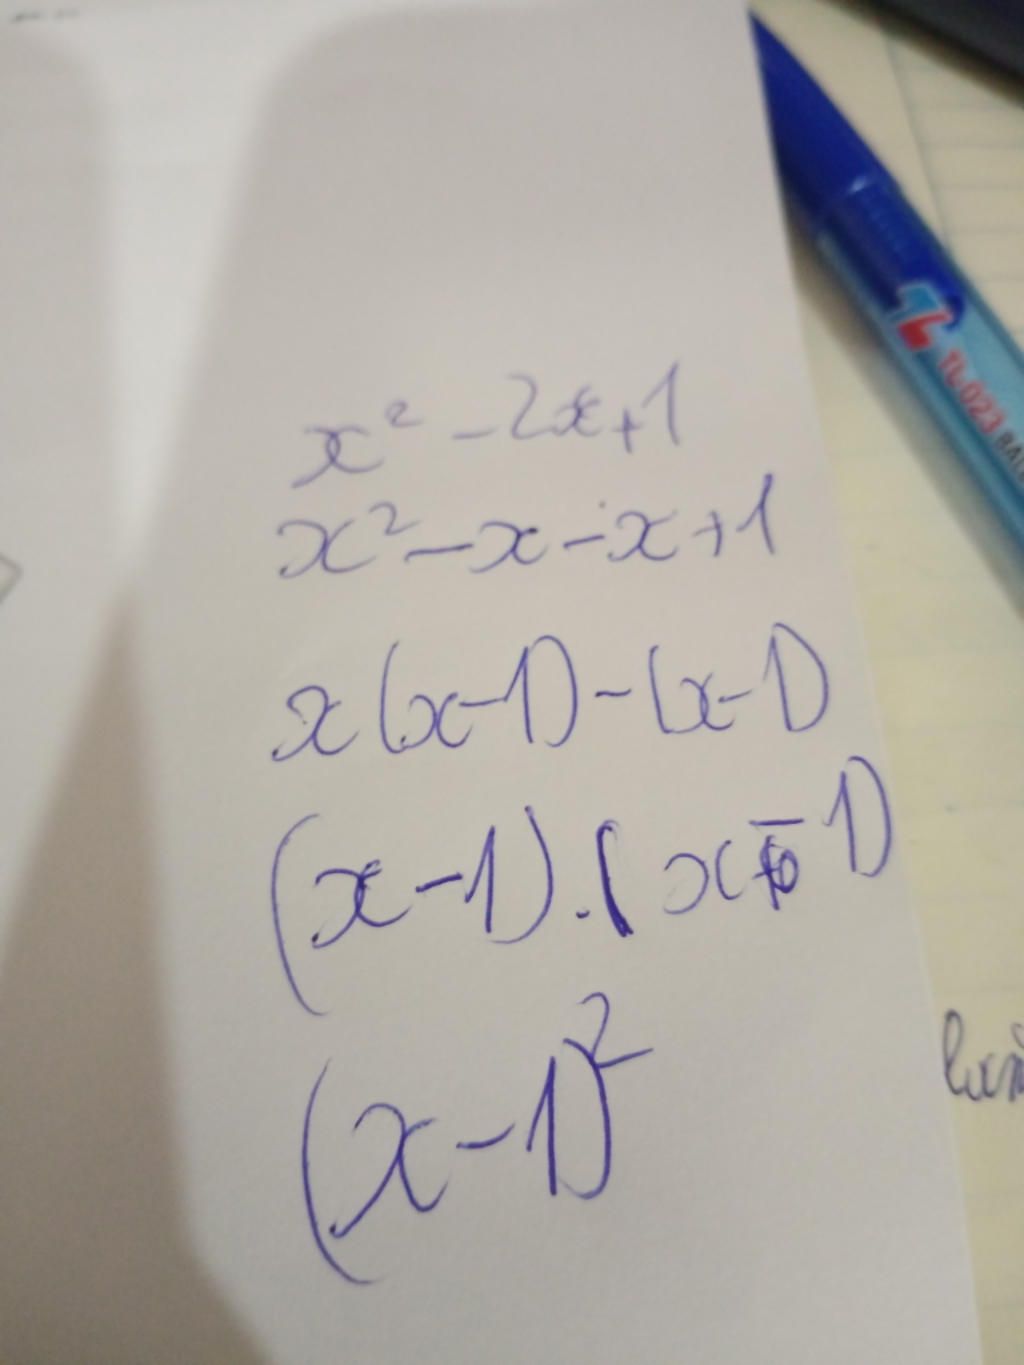 x² - 2x + 1
x² - x - x + 1
x(x-1) - (x-1)
(x-1).(x - 1)
(x-1)²
TL-023